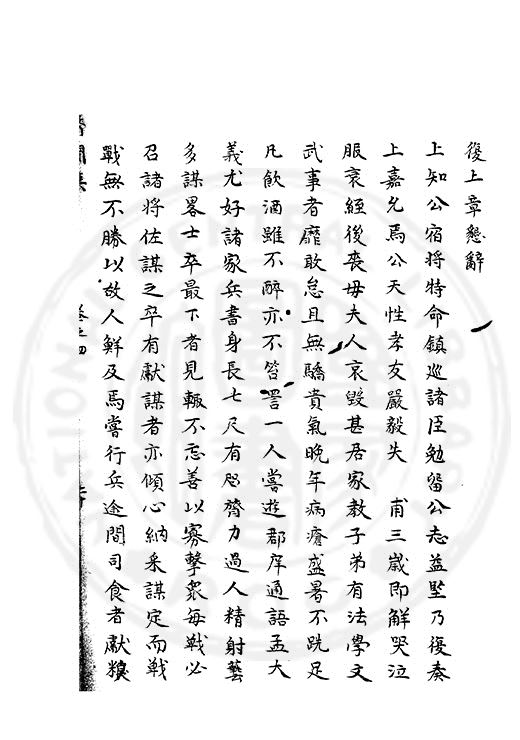 後上章懇辭
上知公宿将特命鎮巡諸臣勉留公志益堅乃復奏
上嘉允焉公天性孝友嚴毅失　甫三歲即解哭泣
服衰絰後喪母夫人哀毀甚居家教子弟有法學文
武事者靡敢怠且無驕貴氣晚年病瘡盛暑不跣足
凡飲酒雖不醉亦不笞詈一人嘗遊郡庠通語孟大
義尤好諸家兵書身長七尺有咫膂力過人精射藝
多謀畧士卒最下者見輙不忘善以寡擊衆每戰必
召諸将佐謀之卒有献謀者亦傾心納采謀定而戰
戰無不勝以故人鮮及焉嘗行兵途間司食者献糗
卷之四